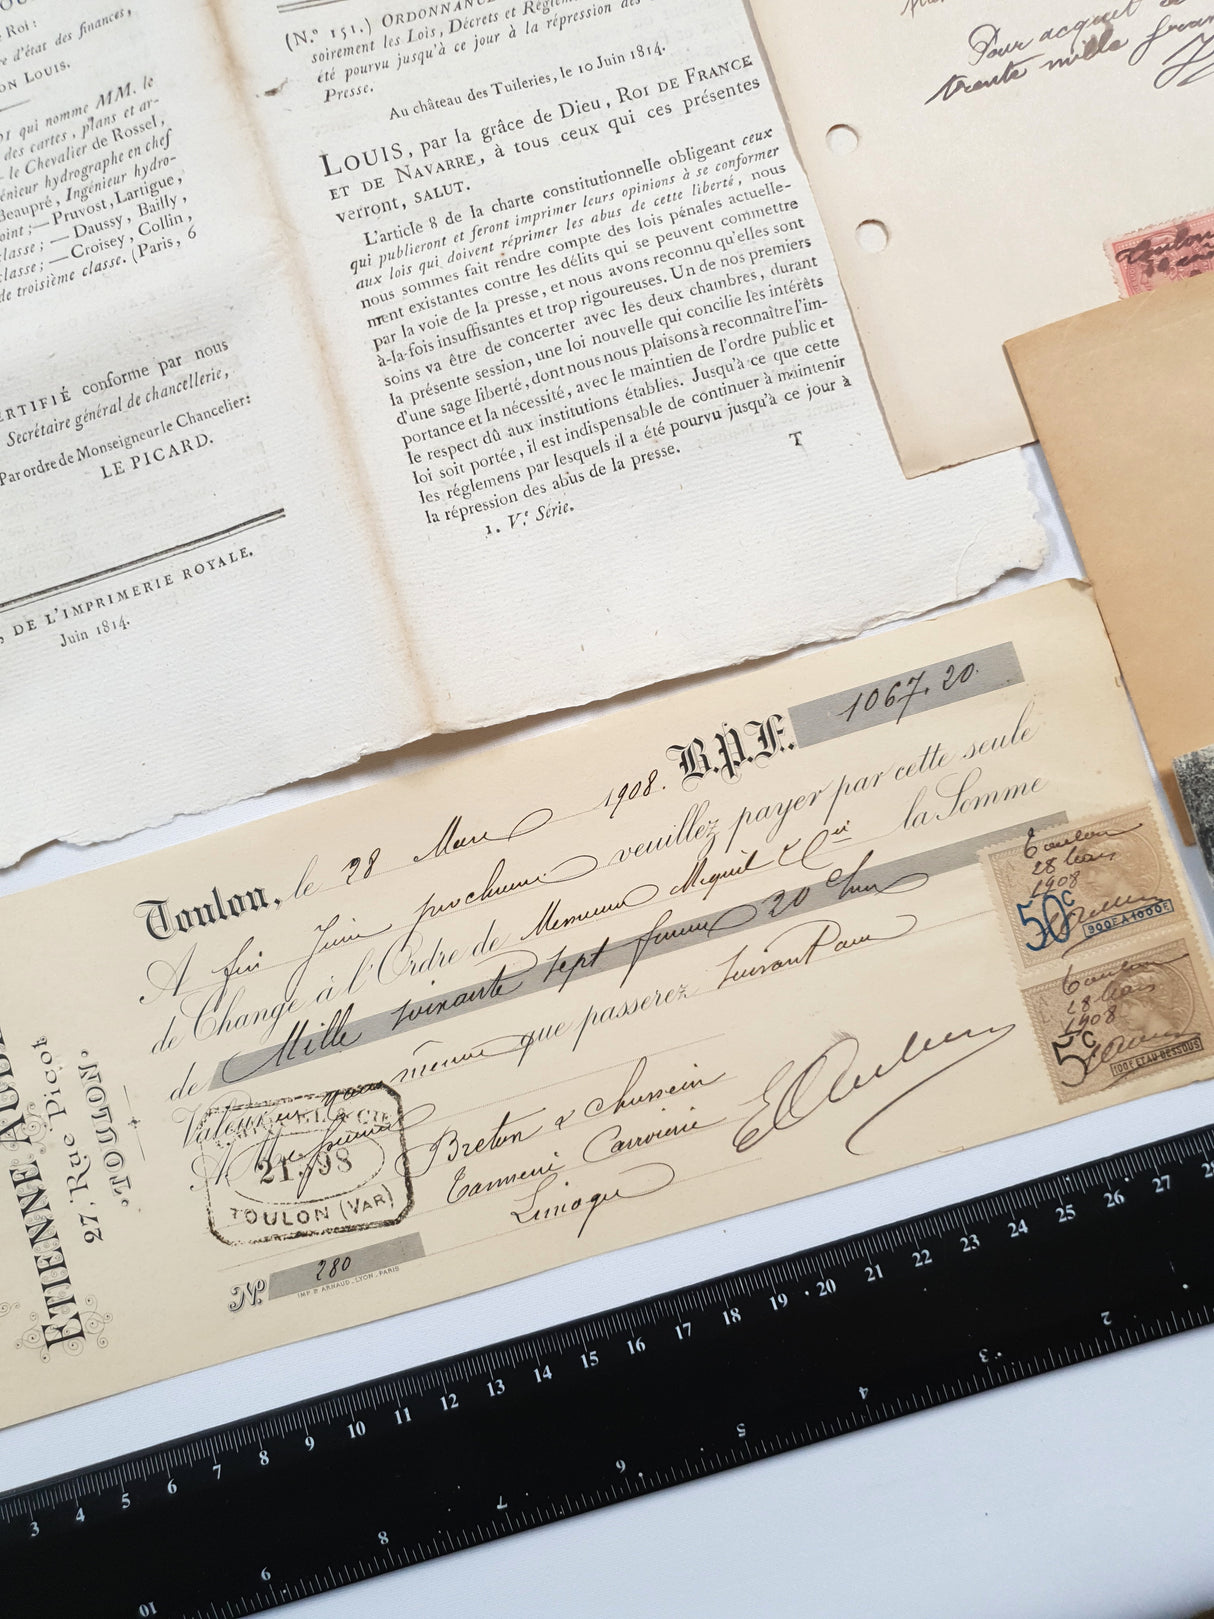 Roi:
e d'état des finances,
ON LOUIS.
qui nomme MM. le
des cartes, plans et ar-
le Chevalier de Rossel,
énieur hydrographe en chef
Beaupré, Ingénieur hydro-
oint; — Pruvost, Lartigue,
classe; — Daussy, Bailly,
classe; — Croisey, Collin,
de troisième classe. (Paris, 6
ERTIFIÉ conforme par nous
Secrétaire général de chancellerie,
Par ordre de Monseigneur le Chancelier:
LE PICARD.
, DE L'IMPRIMERIE ROYALE.
Juin 1814.
(N.º 151.) ORDONNANCE
soirement les Lois, Décrets et Règlem
été pourvu jusqu'à ce jour à la répression des
Presse.
Au château des Tuileries, le 10 Juin 1814.
LOUIS, par la grâce de Dieu, ROI DE FRANCE
ET DE NAVARRE, à tous ceux qui ces présentes
verront, SALUT.
L'article 8 de la charte constitutionnelle obligeant ceux
qui publieront et feront imprimer leurs opinions à se conformer
aux lois qui doivent réprimer les abus de cette liberté, nous
nous sommes fait rendre compte des lois pénales actuelle-
ment existantes contre les délits qui se peuvent commettre
par la voie de la presse, et nous avons reconnu qu'elles sont
à-la-fois insuffisantes et trop rigoureuses. Un de nos premiers
soins va être de concerter avec les deux chambres, durant
la présente session, une loi nouvelle qui concilie les intérêts
d'une sage liberté, dont nous nous plaisons à reconnaître l'im-
portance et la nécessité, avec le maintien de l'ordre public et
le respect dû aux institutions établies. Jusqu'à ce que cette
loi soit portée, il est indispensable de continuer à maintenir
les réglemens par lesquels il a été pourvu jusqu'à ce jour à
la répression des abus de la presse.
1. V.e Série.
T
Pour acquit
trente mille francs
B.P.F. 1067.20
Toulon, le 28 Mars 1908.
A fin Juin prochain veuillez payer par cette seule
de Change à l'Ordre de Messieurs Miquel & Cie la Somme
de Mille soixante sept francs 20 c
Valeur en moi même que passerez suivant
Breton & Chussein
Tannerie Corroierie
Limoges
21.98
TOULON (VAR)
Nº 280
IMP. P. ARNAUD_LYON_PARIS
ETIENNE
27, Rue Picot
TOULON.
Toulon
28 Mars
1908
50c
900F À 1000F
Toulon
28 Mars
1908
5c
100F ET AU-DESSOUS
3 4 5 6 7 8 9 10 11 12 13 14 15 16 17 18 19 20 21 22 23 24 25 26 27 28
10 9 8 7 6 5 4 3 2